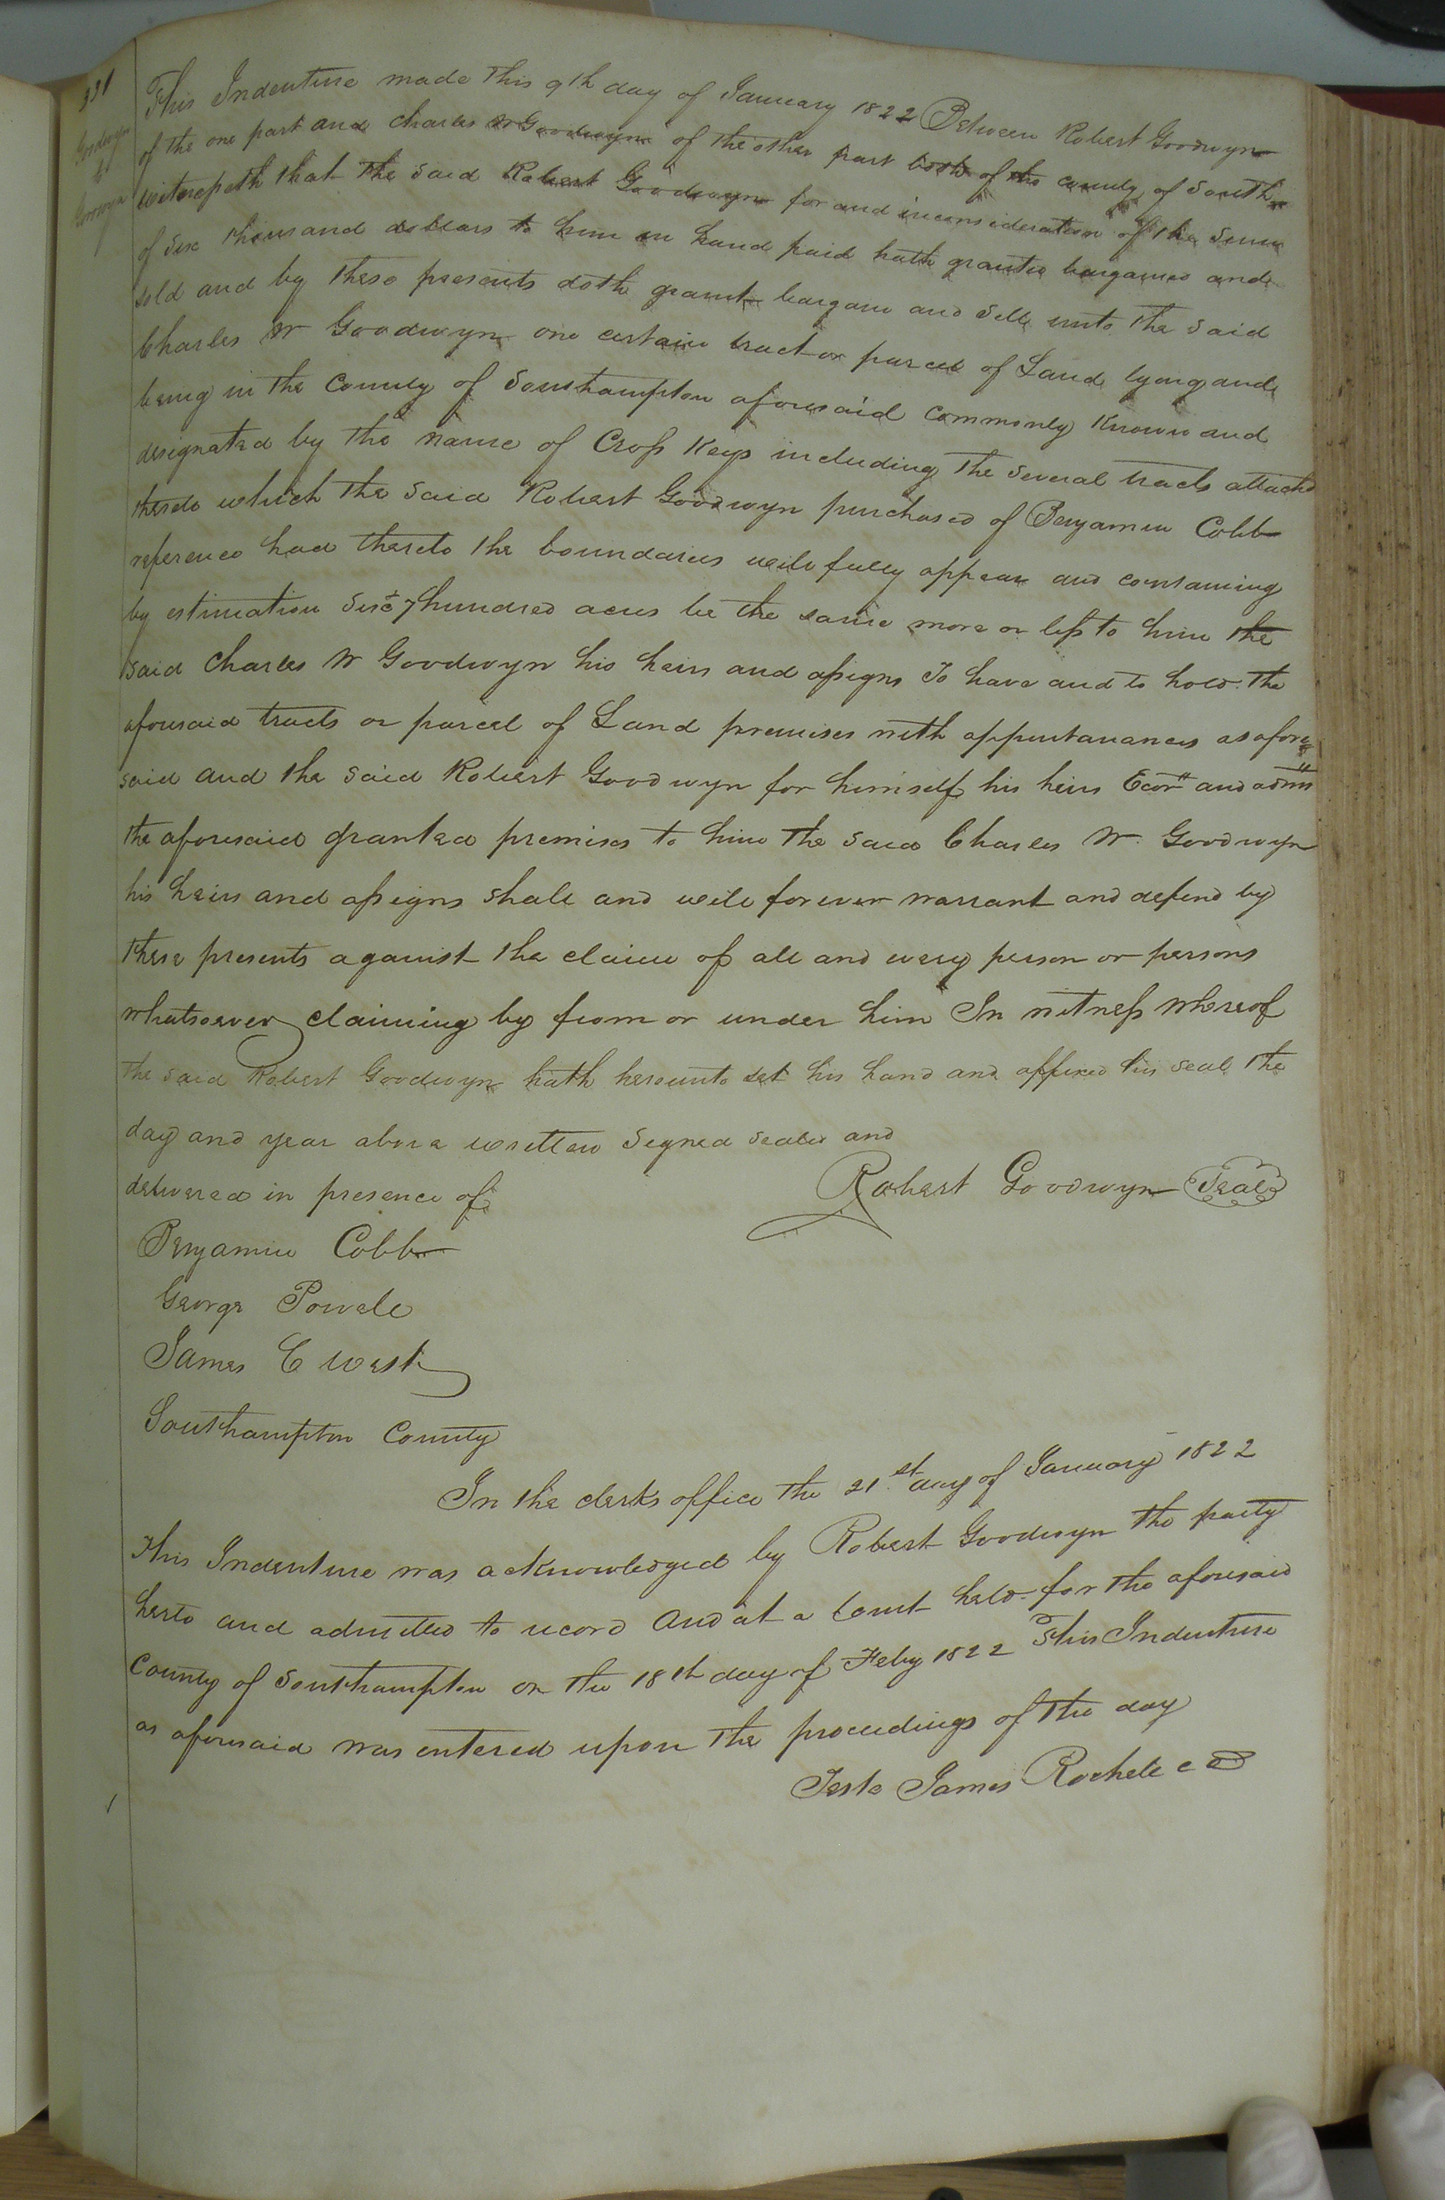 331
Goodwyn
to
Goodwyn
This Indenture made this 9th day of January 1822 Between Robert Goodwyn
of the one part and Charles W Goodwyn of the other part both of the county of South
witnesseth that the said Robert Goodwyn for and in consideration of the sum
of six thousand dollars to him in hand paid hath granted bargained and
sold and by these presents doth grant bargain and sell unto the said
Charles W Goodwyn one certain tract or parcel of Land lying and
being in the County of Southampton aforesaid commonly known and
designated by the name of Cross Keys including the several tracts attached
thereto which the said Robert Goodwyn purchased of Benjamin Cobb
reference had thereto the boundaries will fully appear and containing
by estimation hundred acres be the same more or less to him the
said Charles W Goodwyn his heirs and assigns To have and to hold the
aforesaid tracts or parcel of Land premises with appurtanances as afore
said and the said Robert Goodwyn for himself his heirs Ecors and admrs
the aforesaid granted premises to him the said Charles W. Goodwyn
his heirs and assigns shall and will forever warrant and defend by
these presents against the claim of all and every person or persons
whatsoever claiming by from or under him In witness whereof
the said Robert Goodwyn hath hereunto set his hand and affixed his seal the
day and year above written Signed sealed and
delivered in presence of
Robert Goodwyn Seal
Benjamin Cobb
George Powell
James C West
Southampton County
In the clerks office the 21st day of January 1822
This Indenture was acknowledged by Robert Goodwyn the party
hereto and admitted to record And at a Court held for the aforesaid
County of Southampton on the 18th day of Feby 1822 This Indenture
as aforesaid was entered upon the proceedings of the day
Teste James Rochelle